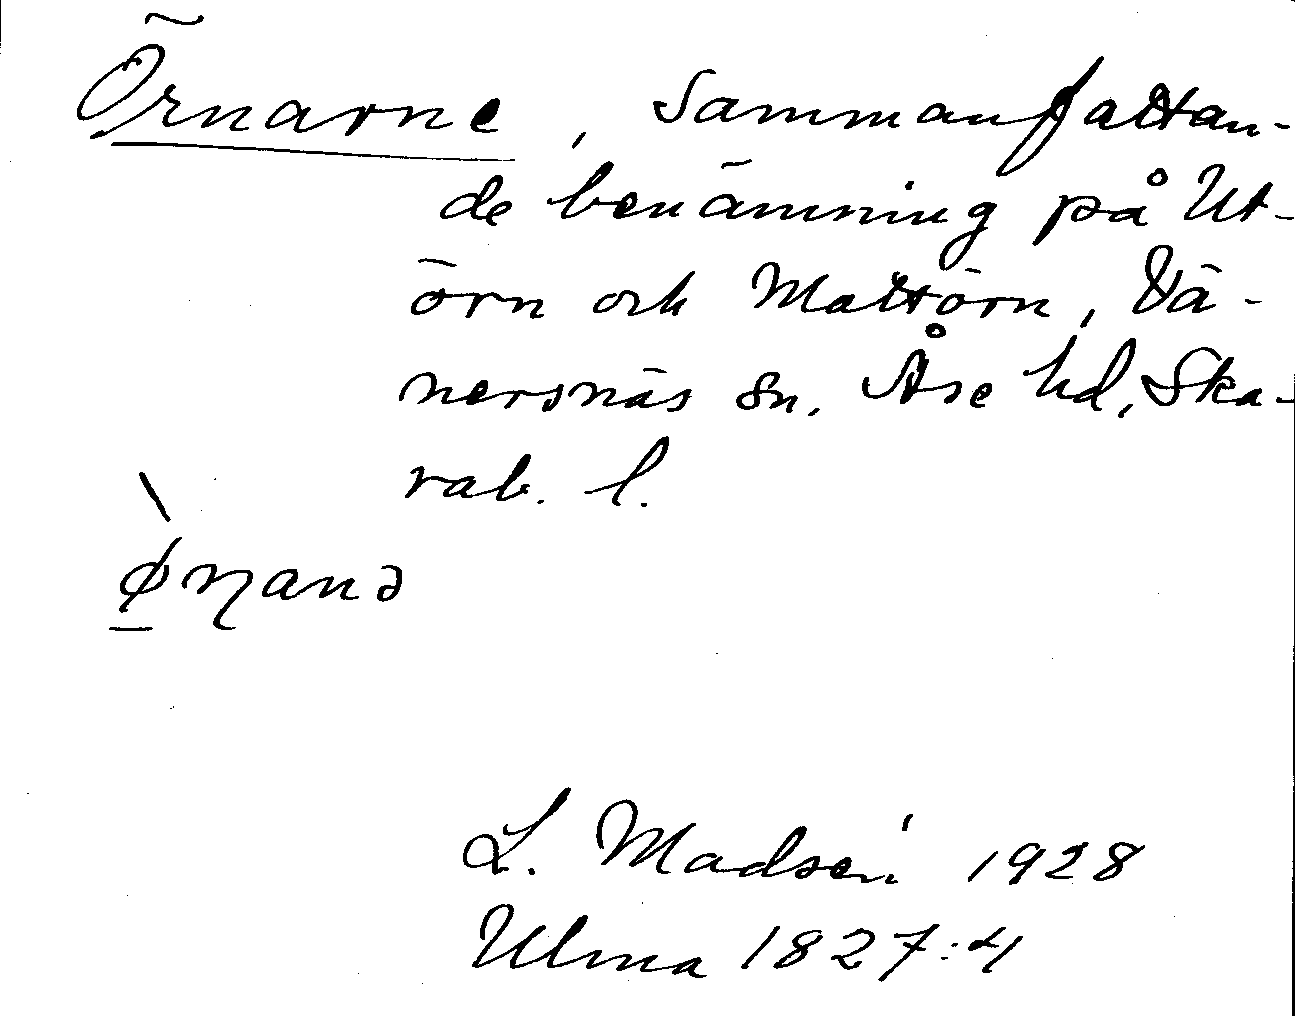 Örnarne, Sammanfattan-
de benämning på Ut-
örn och Mattörn, Vä-
nersnäs sn. Åse hd, Ska-
rab. l.
L. Madsén 1928
Ulma 1827:4